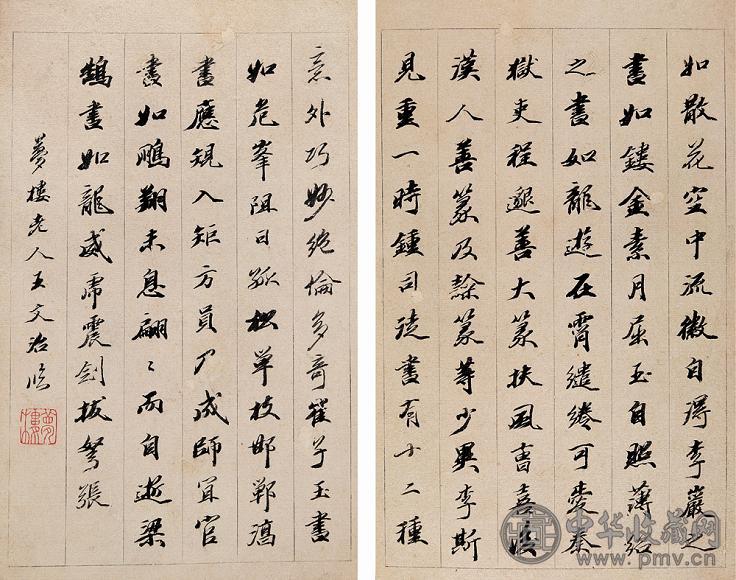 如散花空中流徽自得李巖之
書如鏤金素月屈玉自照薄紹
之書如龍遊在霄繾綣可愛秦
獄吏程邈善大篆扶風曹喜後
漢人善篆及隸篆等少異李斯
見重一時鍾司徒書有十二種
意外巧妙絕倫多奇崔子玉書
如危峯阻日孤松單枝邯鄲淳
書應規入矩方員乃成師宜官
書如鵬翔未息翩〻而自逝梁
鵠書如龍威虎震劍拔弩張
夢樓老人王文治臨
夢樓
中华收藏网
www.pmv.cn